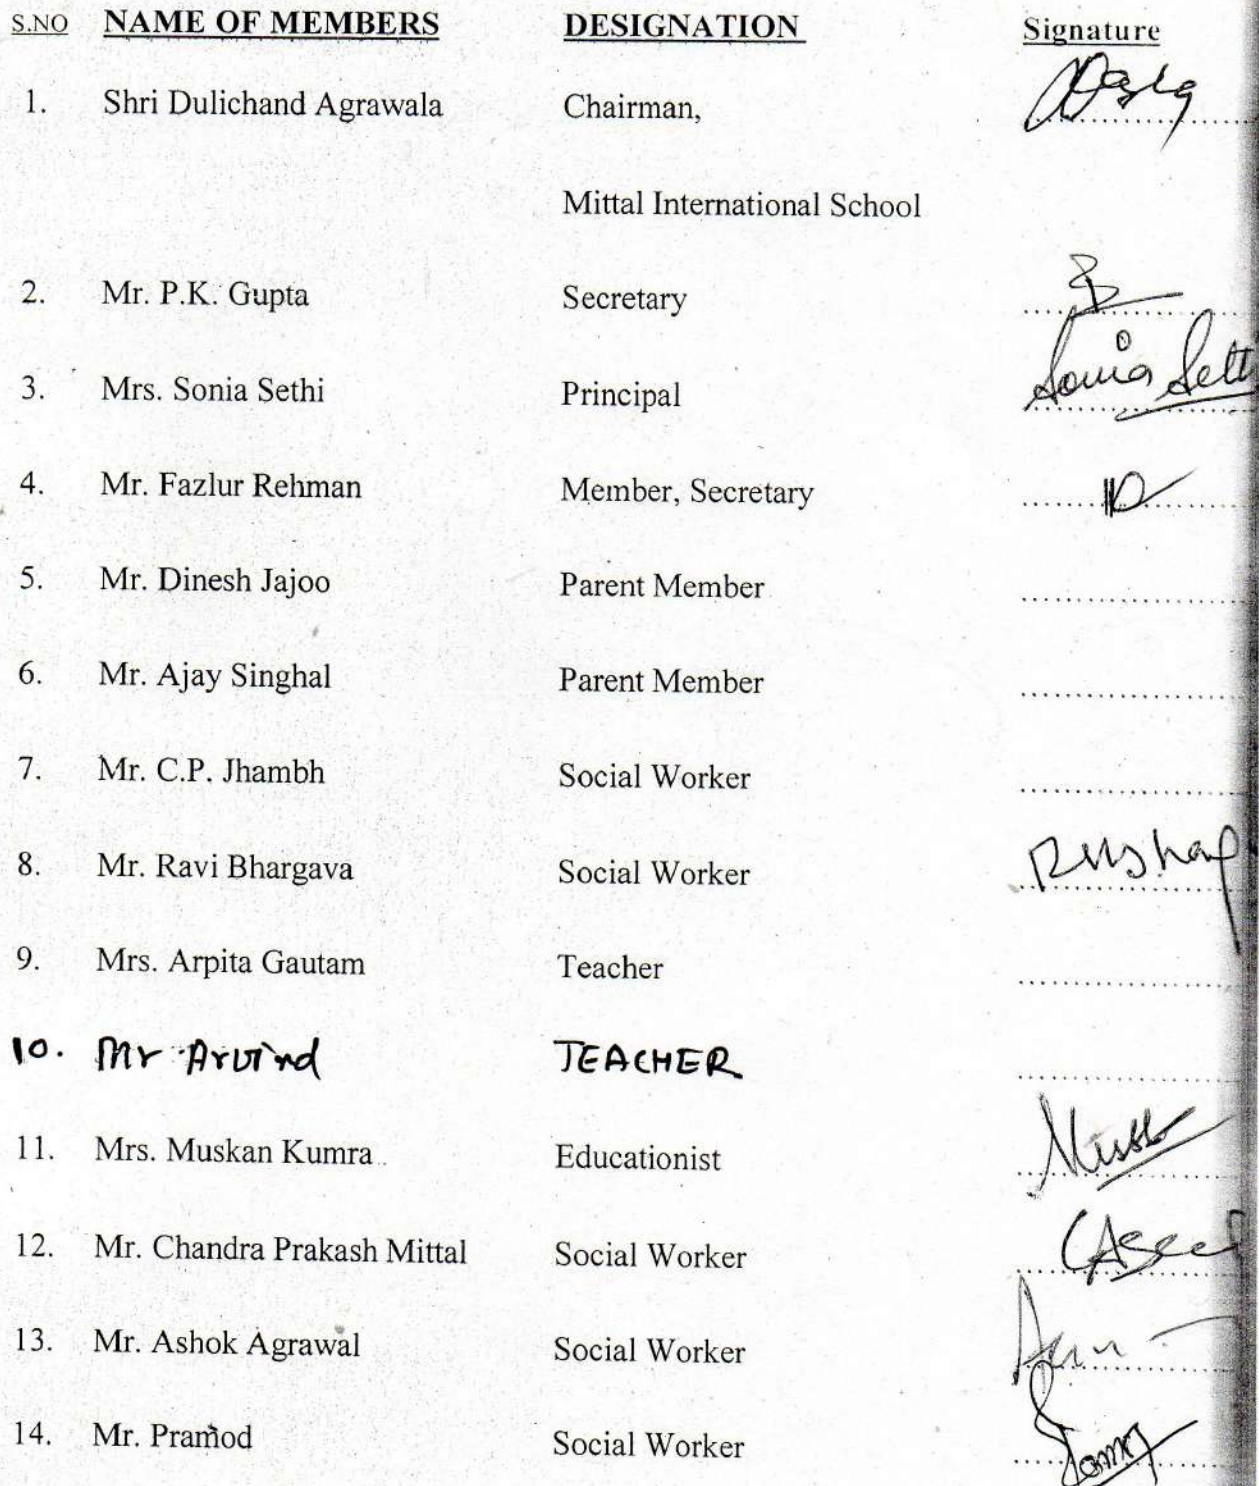 S.NO NAME OF MEMBERS DESIGNATION Signature
1. Shri Dulichand Agrawala Chairman,
Mittal International School
2. Mr. P.K. Gupta Secretary
3. Mrs. Sonia Sethi Principal Sonia Seth
4. Mr. Fazlur Rehman Member, Secretary
5. Mr. Dinesh Jajoo Parent Member
6. Mr. Ajay Singhal Parent Member
7. Mr. C.P. Jhambh Social Worker
8. Mr. Ravi Bhargava Social Worker
9. Mrs. Arpita Gautam Teacher
10. Mr Arvind TEACHER
11. Mrs. Muskan Kumra Educationist
12. Mr. Chandra Prakash Mittal Social Worker
13. Mr. Ashok Agrawal Social Worker
14. Mr. Pramod Social Worker